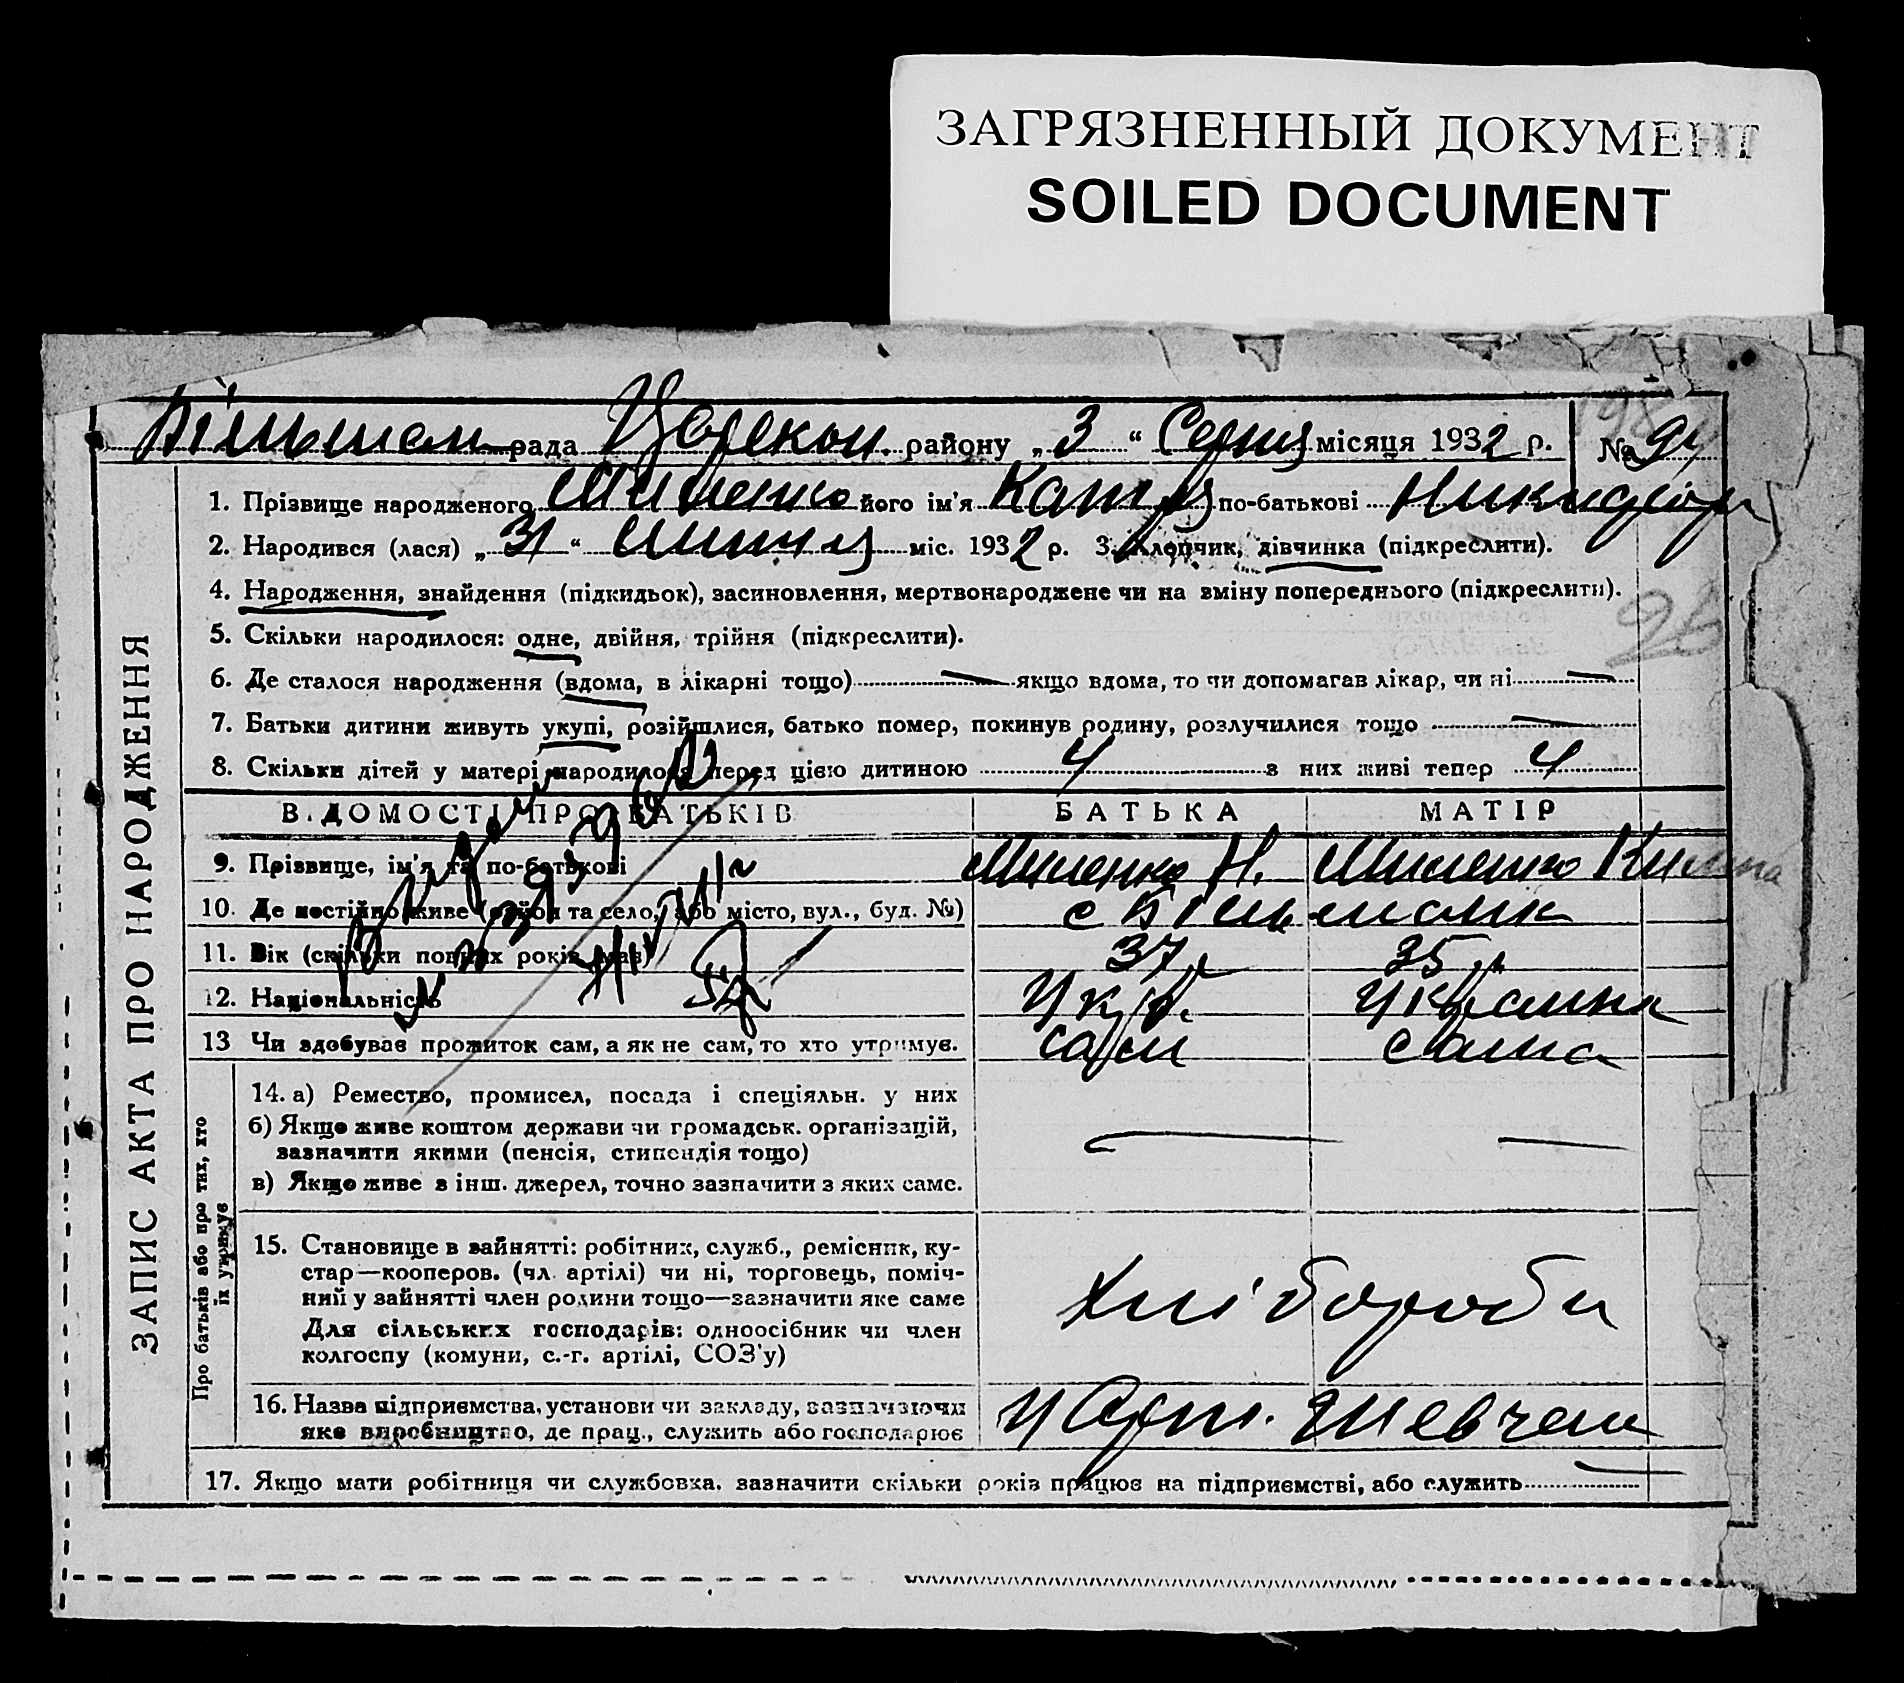 ЗАГРЯЗНЕННЫЙ ДОКУМЕНТ
SOILED DOCUMENT
рада району „3“ Серпня місяця 1932 р. №
1. Прізвище народженого його ім'я Катря по-батькові Никифор
2. Народився (лася) „31“ міс. 1932 р. 3. Хлопчик, дівчинка (підкреслити).
4. Народження, знайдення (підкидьок), засиновлення, мертвонароджене чи на зміну попереднього (підкреслити).
5. Скільки народилося: одне, двійня, трійня (підкреслити).
6. Де сталося народження (вдома, в лікарні тощо) — якщо вдома, то чи допомагав лікар, чи ні —
7. Батьки дитини живуть укупі, розійшлися, батько помер, покинув родину, розлучилися тощо —
8. Скільки дітей у матері народилося перед цією дитиною 4 з них живі тепер 4
ВІДОМОСТІ ПРО БАТЬКІВ БАТЬКА МАТІР
9. Прізвище, ім'я та по-батькові
10. Де постійно живе (район та село, або місто, вул., буд. №)
11. Вік (скільки повних років має) 37 35
12. Національність Укр. Українка
13 Чи здобуває прожиток сам, а як не сам, то хто утримує. сам сама
14. а) Ремество, промисел, посада і спеціяльн. у них
б) Якщо живе коштом держави чи громадськ. організацій,
зазначити якими (пенсія, стипендія тощо)
в) Якщо живе з інш. джерел, точно зазначити з яких саме.
15. Становище в зайнятті: робітник, служб., ремісник, ку-
стар—кооперов. (чл. артілі) чи ні, торговець, поміч-
ний у зайнятті член родини тощо—зазначити яке саме
Для сільських господарів: одноосібник чи член
колгоспу (комуни, с.-г. артілі, СОЗ'у)
Хлібороби
16. Назва підприємства, установи чи закладу, зазначаючи
яке виробництво, де прац., служить або господарює
у Арт. Шевченк
17. Якщо мати робітниця чи службовка, зазначити скільки років працює на підприємстві, або служить —
ЗАПИС АКТА ПРО НАРОДЖЕННЯ
Про батьків або про тих, хто
їх утримує